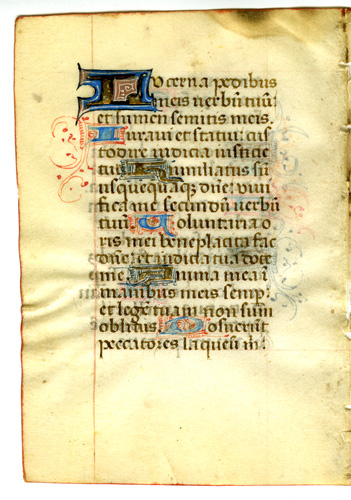 Lucerna pedibus
meis verbū tuū:
et lumen semitis meis.
Iuravi et statui: cus
todire iudicia iusticie
tue. Humiliatus sū
usquequaq; dñe: vivi
fica me secundū verbū
tuū. Voluntaria o
ris mei bene placita fac
dñe: et iudicia tua doce
me. Anima mea ī
manibus meis semp:
et legē tuam non sum
oblitus. Posuerūt
peccatores laqueū m̄: